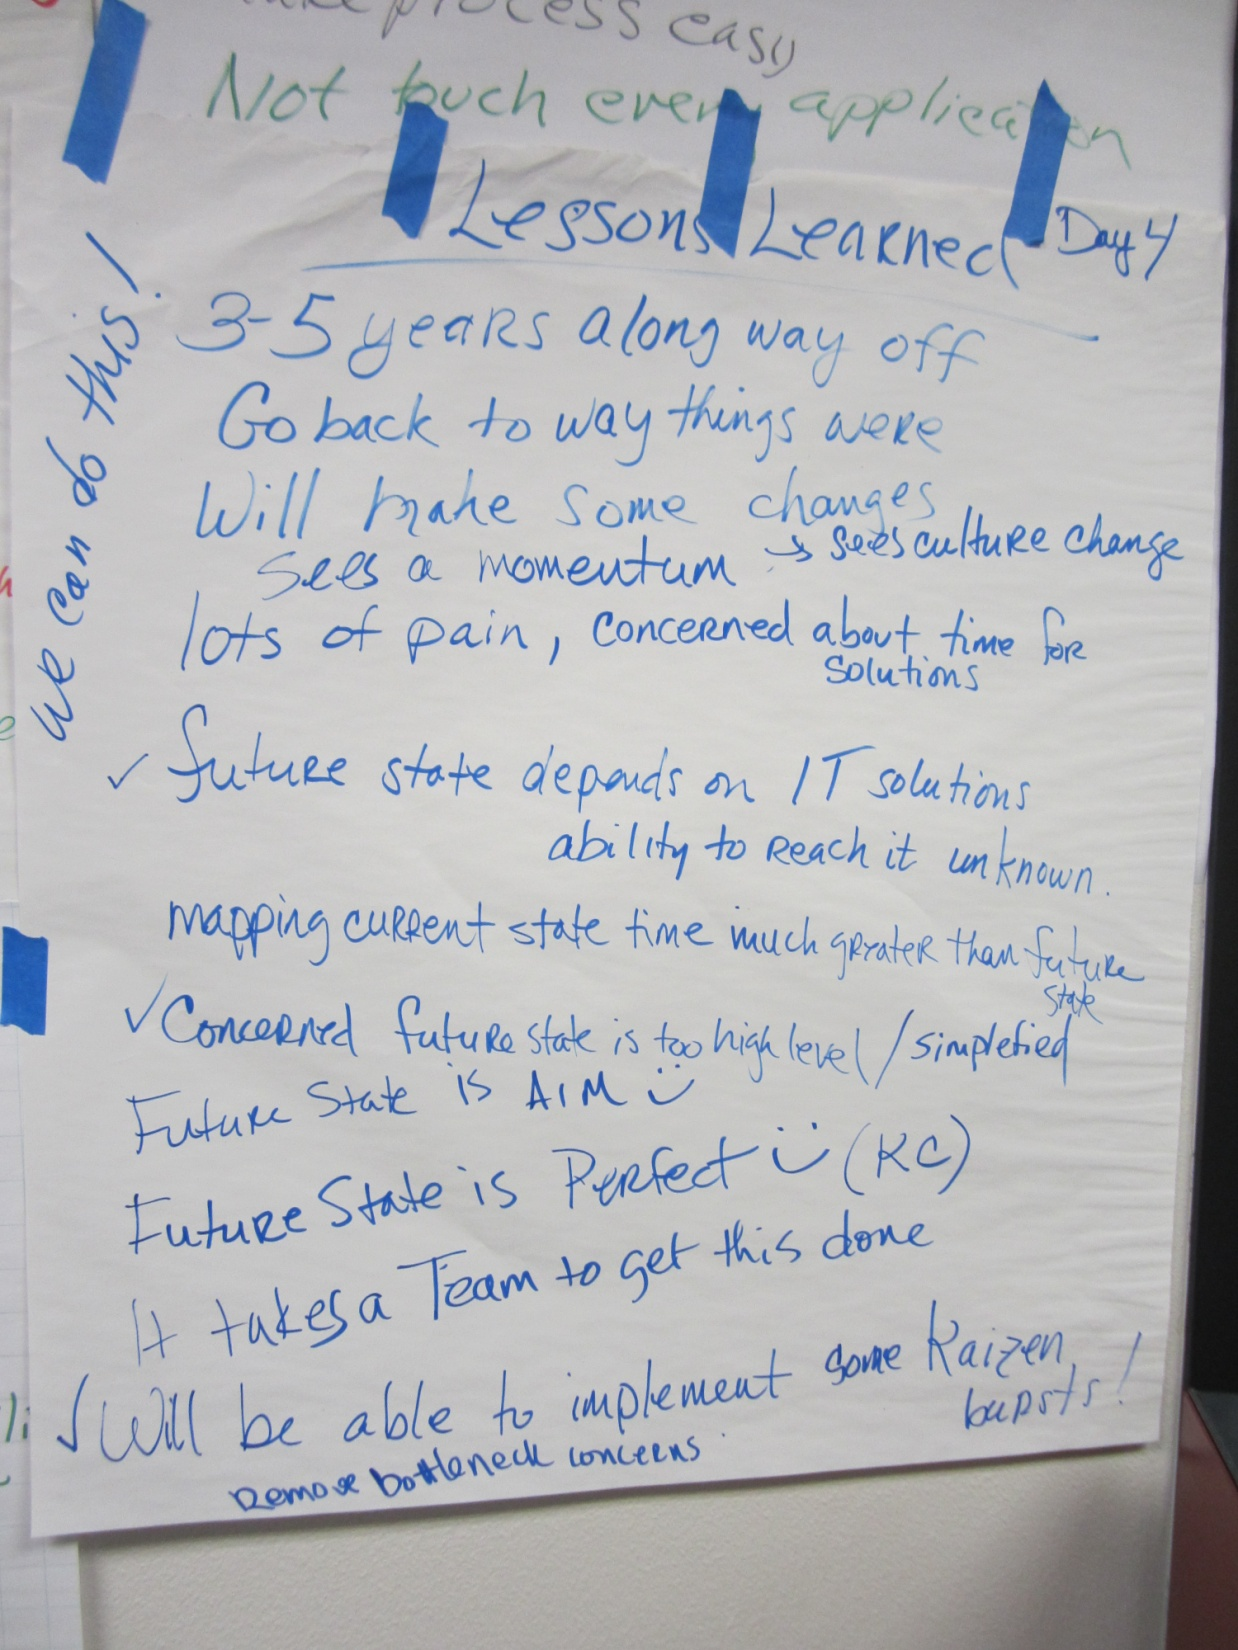 process easy
Not touch every application
Lessons Learned - Day 4
we can do this!
3-5 years a long way off
Go back to way things were
Will make some changes
sees a momentum → sees culture change
lots of pain, concerned about time for
solutions
✓ future state depends on IT solutions
ability to reach it unknown.
mapping current state time much greater than future
state
✓ Concerned future state is too high level / simplefied
Future State is AIM :)
Future State is Perfect :) (KC)
It takes a Team to get this done
✓ Will be able to implement some Kaizen
bursts!
Remove bottleneck concerns